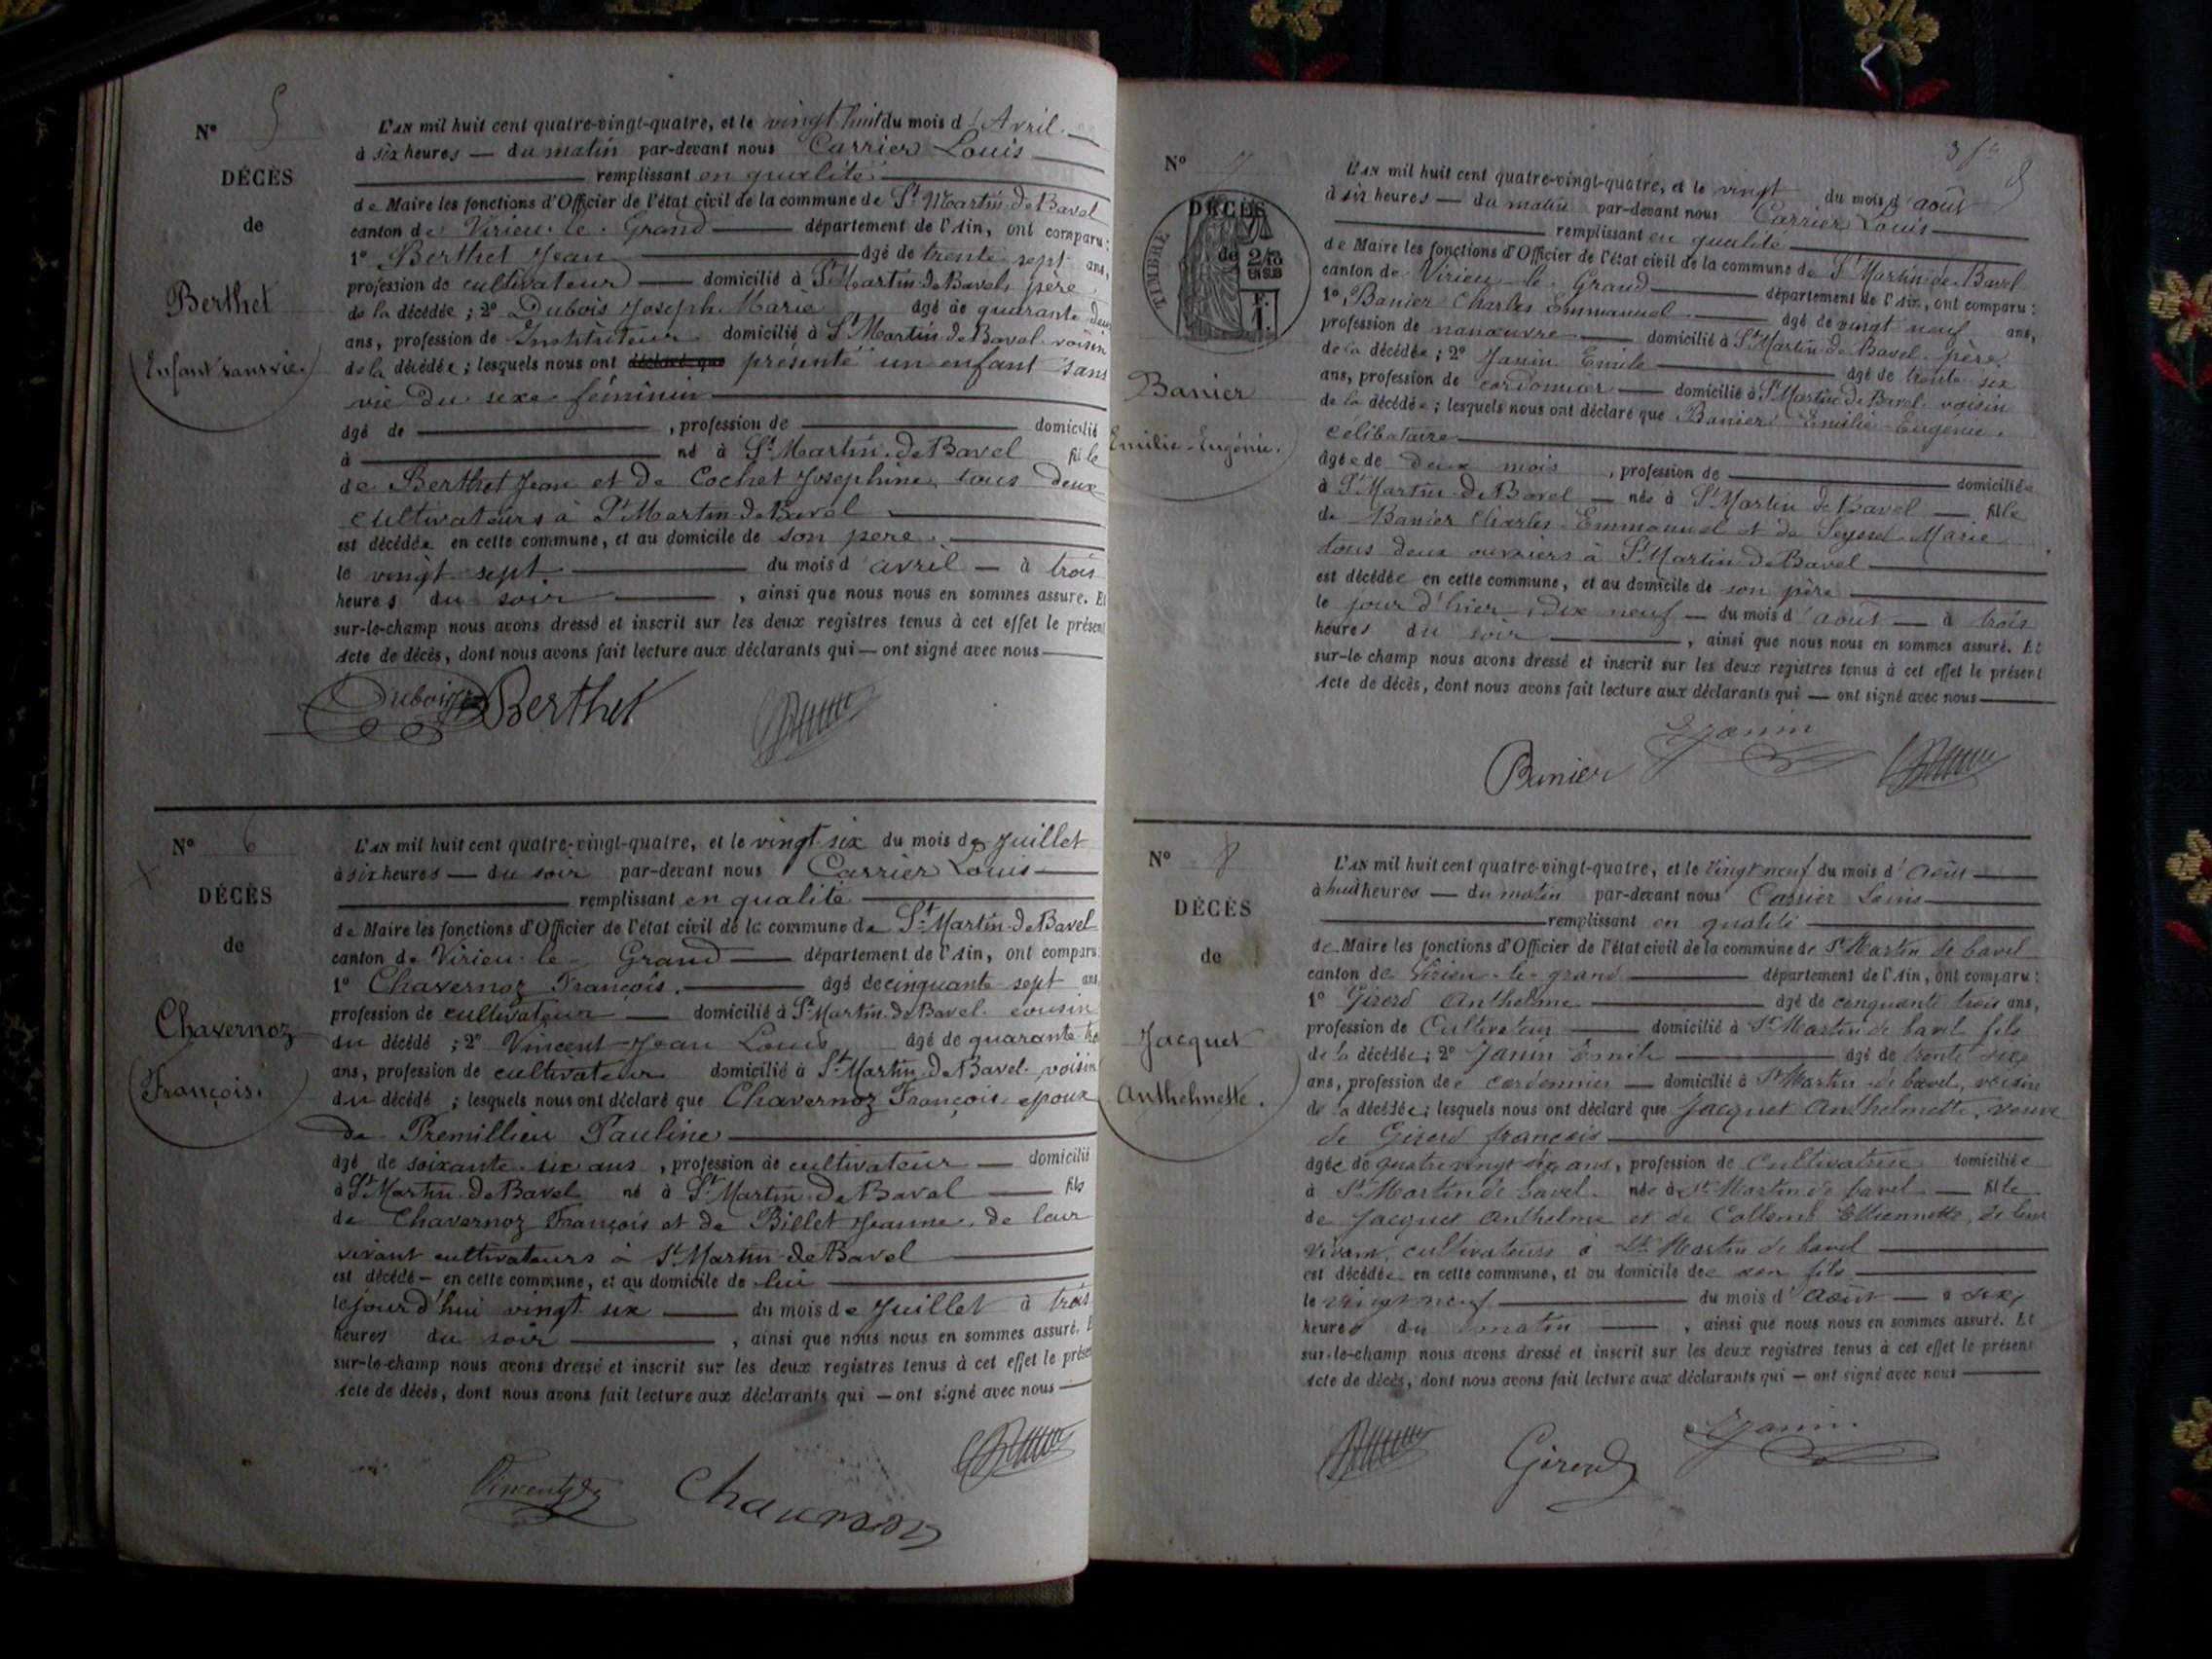 N° 5
DÉCÈS
de
Berthet
(Enfant sans vie.)
L'AN mil huit cent quatre-vingt-quatre, et le vingt huit du mois d'Avril
à six heures — du matin par-devant nous Carrier Louis
remplissant en qualité
de Maire les fonctions d'Officier de l'état civil de la commune de St Martin de Bavel
canton de Virieu-le-Grand département de l'Ain, ont comparu:
1° Berthet Jean âgé de trente sept ans,
profession de cultivateur domicilié à St Martin de Bavel, père
de la décédée ; 2° Dubois Joseph Marie âgé de quarante deux
ans, profession de Instituteur domicilié à St Martin de Bavel voisin
de la décédée ; lesquels nous ont déclaré que présenté un enfant sans
vie du sexe féminin
âgé de , profession de domicilié
à né à St Martin de Bavel fille
de Berthet Jean et de Cochet Josephine, tous deux
cultivateurs à St Martin de Bavel
est décédée en cette commune, et au domicile de son père.
le vingt sept du mois d'avril — à trois
heures du soir , ainsi que nous nous en sommes assuré. Et
sur-le-champ nous avons dressé et inscrit sur les deux registres tenus à cet effet le présent
acte de décès, dont nous avons fait lecture aux déclarants qui — ont signé avec nous
Dubois Berthet
N° 6
DÉCÈS
de
Chavernoz
(François.)
L'AN mil huit cent quatre-vingt-quatre, et le vingt six du mois de Juillet
à six heures — du soir par-devant nous Carrier Louis
remplissant en qualité
de Maire les fonctions d'Officier de l'état civil de la commune de St Martin de Bavel
canton de Virieu-le-Grand département de l'Ain, ont comparu
1° Chavernoz François. âgé de cinquante sept ans
profession de cultivateur domicilié à St Martin de Bavel cousin
du décédé ; 2° Vincent Jean Louis âgé de quarante
ans, profession de cultivateur domicilié à St Martin de Bavel voisin
du décédé ; lesquels nous ont déclaré que Chavernoz François époux
de Premillieu Pauline
âgé de soixante six ans , profession de cultivateur — domicilié
à St Martin de Bavel né à St Martin de Bavel fils
de Chavernoz François et de Billet Jeanne, de leur
vivant cultivateurs à St Martin de Bavel
est décédé — en cette commune, et au domicile de lui
le jourd'hui vingt six du mois de Juillet à trois
heures du soir , ainsi que nous nous en sommes assuré. E
sur-le-champ nous avons dressé et inscrit sur les deux registres tenus à cet effet le prése
acte de décès, dont nous avons fait lecture aux déclarants qui — ont signé avec nous
Vincent Chavernoz
N° 7
DÉCÈS
de
TIMBRE
2/10
EN SUS
Banier
Emilie-Eugénie.
L'AN mil huit cent quatre-vingt-quatre, et le vingt du mois d'août
à six heures — du matin par-devant nous Carrier Louis
remplissant en qualité
de Maire les fonctions d'Officier de l'état civil de la commune de St Martin de Bavel
canton de Virieu-le-Grand département de l'Ain, ont comparu :
1° Banier Charles Emmanuel âgé de vingt neuf ans,
profession de manœuvre domicilié à St Martin de Bavel père
de la décédée ; 2° Janin Emile âgé de trente six
ans, profession de cordonnier domicilié à St Martin de Bavel voisin
de la décédée ; lesquels nous ont déclaré que Banier Emilie-Eugénie.
celibataire
âgée de deux mois , profession de domiciliée
à St Martin de Bavel — née à St Martin de Bavel — fille
de Banier Charles Emmanuel et de Seyssel Marie
tous deux ouvriers à St Martin de Bavel
est décédée en cette commune, et au domicile de son père
le jour d'hier dix neuf — du mois d'août — à trois
heures du soir , ainsi que nous nous en sommes assuré. Et
sur-le-champ nous avons dressé et inscrit sur les deux registres tenus à cet effet le présent
acte de décès, dont nous avons fait lecture aux déclarants qui — ont signé avec nous
Banier EJanin
N° 8
DÉCÈS
de
Jacquet
Anthelmette.
L'AN mil huit cent quatre-vingt-quatre, et le vingt neuf du mois d'Août
à huit heures — du matin par-devant nous Carrier Louis
remplissant en qualité
de Maire les fonctions d'Officier de l'état civil de la commune de St Martin de bavel
canton de Virieu-le-grand département de l'Ain, ont comparu :
1° Girerd Anthelme âgé de cinquante trois ans,
profession de Cultivateur domicilié à St Martin de bavel fils
de la décédée ; 2° Janin Emile âgé de trente six
ans, profession de cordonnier — domicilié à St Martin de bavel, voisin
de la décédée ; lesquels nous ont déclaré que Jacquet Anthelmette, veuve
de Girerd françois
âgée de quatre vingt dix ans, profession de Cultivatrice domiciliée
à St Martin de bavel née à St Martin de bavel — fille
de Jacquet Anthelme et de Collomb Etiennette, de leur
vivant, cultivateurs à St Martin de bavel
est décédée en cette commune, et au domicile de son fils
le vingt neuf du mois d'Août — à six
heures du matin , ainsi que nous nous en sommes assuré. Et
sur-le-champ nous avons dressé et inscrit sur les deux registres tenus à cet effet le présent
acte de décès, dont nous avons fait lecture aux déclarants qui — ont signé avec nous
Girerd EJanin